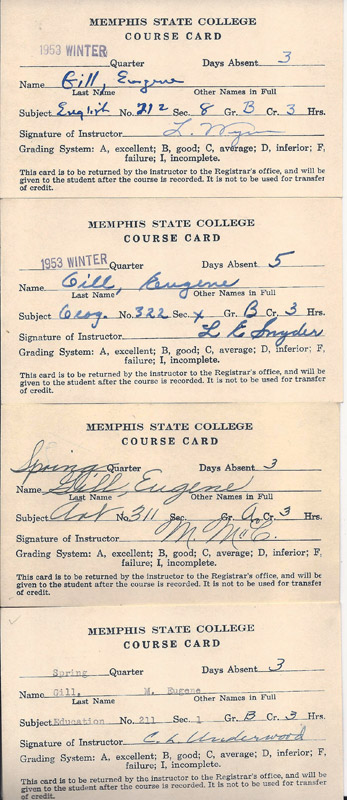 MEMPHIS STATE COLLEGE
COURSE CARD
1953 WINTER Quarter Days Absent 3
Name Gill, Eugene
Last Name Other Names in Full
Subject English No. 212 Sec. 8 Gr. B Cr. 3 Hrs.
Signature of Instructor L. Wynn
Grading System: A, excellent; B, good; C, average; D, inferior; F,
failure; I, incomplete.
This card is to be returned by the instructor to the Registrar's office, and will be
given to the student after the course is recorded. It is not to be used for transfer
of credit.
MEMPHIS STATE COLLEGE
COURSE CARD
1953 WINTER Quarter Days Absent 5
Name Gill, Eugene
Last Name Other Names in Full
Subject Geog. No. 322 Sec. x Gr. B Cr. 3 Hrs.
Signature of Instructor L E Snyder
Grading System: A, excellent; B, good; C, average; D, inferior; F,
failure; I, incomplete.
This card is to be returned by the instructor to the Registrar's office, and will be
given to the student after the course is recorded. It is not to be used for transfer
of credit.
MEMPHIS STATE COLLEGE
COURSE CARD
Spring Quarter Days Absent 3
Name Gill, Eugene
Last Name Other Names in Full
Subject Art No. 311 Sec. Gr. A Cr. 3 Hrs.
Signature of Instructor M. McC.
Grading System: A, excellent; B, good; C, average; D, inferior; F,
failure; I, incomplete.
This card is to be returned by the instructor to the Registrar's office, and will be
given to the student after the course is recorded. It is not to be used for transfer
of credit.
MEMPHIS STATE COLLEGE
COURSE CARD
Spring Quarter Days Absent 3
Name Gill, M. Eugene
Last Name Other Names in Full
Subject Education No. 211 Sec. 1 Gr. B Cr. 3 Hrs.
Signature of Instructor C. L. Underwood
Grading System: A, excellent; B, good; C, average; D, inferior; F,
failure; I, incomplete.
This card is to be returned by the instructor to the Registrar's office, and will be
given to the student after the course is recorded. It is not to be used for transfer